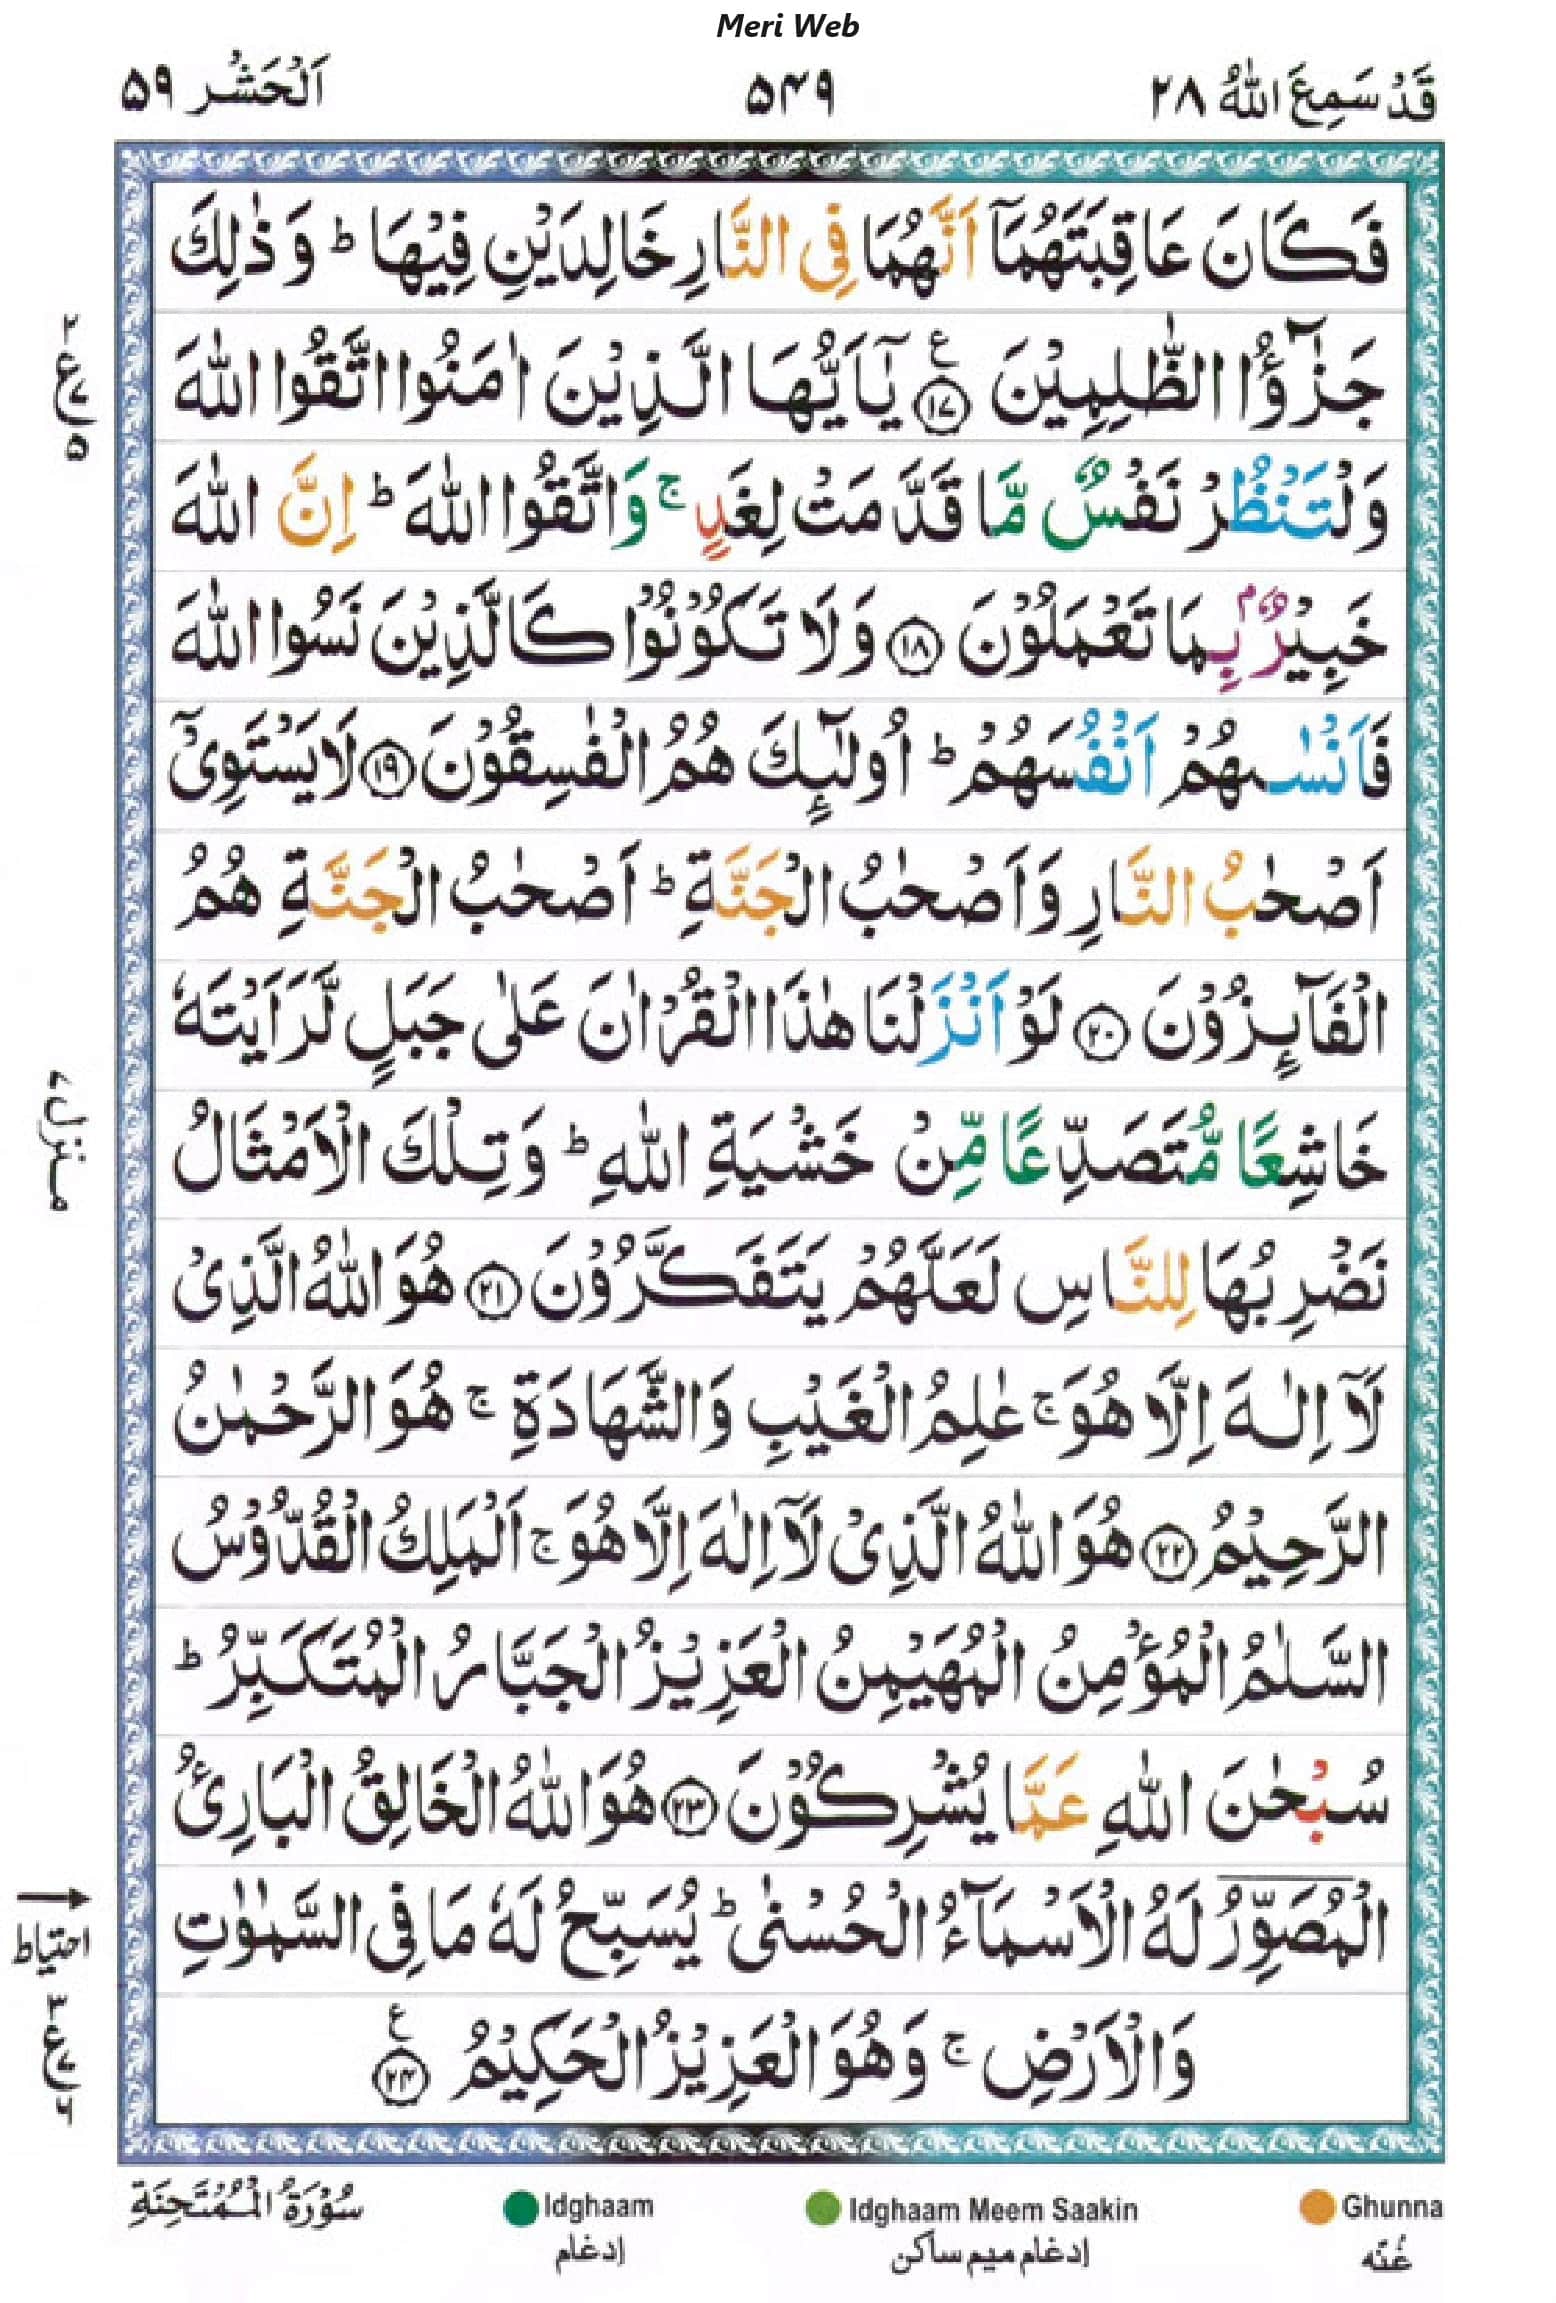 Meri Web
قَدْ سَمِعَ اللّٰهُ ٢٨ ٥٤٩ اَلْحَشْر ٥٩
فَكَانَ عَاقِبَتَهُمَاۤ اَنَّهُمَا فِى النَّارِ خَالِدَيْنِ فِيْهَا ؕ وَذٰلِكَ
جَزٰٓؤُا الظّٰلِمِيْنَ ﴿١٧﴾ ع يٰۤاَيُّهَا الَّذِيْنَ اٰمَنُوا اتَّقُوا اللّٰهَ
وَلْتَنْظُرْ نَفْسٌ مَّا قَدَّمَتْ لِغَدٍ ۚ وَاتَّقُوا اللّٰهَ ؕ اِنَّ اللّٰهَ
خَبِيْرٌۢ بِمَا تَعْمَلُوْنَ ﴿١٨﴾ وَلَا تَكُوْنُوْا كَالَّذِيْنَ نَسُوا اللّٰهَ
فَاَنْسٰىهُمْ اَنْفُسَهُمْ ؕ اُولٰٓئِكَ هُمُ الْفٰسِقُوْنَ ﴿١٩﴾ لَا يَسْتَوِىْۤ
اَصْحٰبُ النَّارِ وَاَصْحٰبُ الْجَنَّةِ ؕ اَصْحٰبُ الْجَنَّةِ هُمُ
الْفَآئِزُوْنَ ﴿٢٠﴾ لَوْ اَنْزَلْنَا هٰذَا الْقُرْاٰنَ عَلٰى جَبَلٍ لَّرَاَيْتَهٗ
خَاشِعًا مُّتَصَدِّعًا مِّنْ خَشْيَةِ اللّٰهِ ؕ وَتِلْكَ الْاَمْثَالُ
نَضْرِبُهَا لِلنَّاسِ لَعَلَّهُمْ يَتَفَكَّرُوْنَ ﴿٢١﴾ هُوَ اللّٰهُ الَّذِىْ
لَاۤ اِلٰهَ اِلَّا هُوَ ۚ عٰلِمُ الْغَيْبِ وَالشَّهَادَةِ ۚ هُوَ الرَّحْمٰنُ
الرَّحِيْمُ ﴿٢٢﴾ هُوَ اللّٰهُ الَّذِىْ لَاۤ اِلٰهَ اِلَّا هُوَ ۚ اَلْمَلِكُ الْقُدُّوْسُ
السَّلٰمُ الْمُؤْمِنُ الْمُهَيْمِنُ الْعَزِيْزُ الْجَبَّارُ الْمُتَكَبِّرُ ؕ
سُبْحٰنَ اللّٰهِ عَمَّا يُشْرِكُوْنَ ﴿٢٣﴾ هُوَ اللّٰهُ الْخَالِقُ الْبَارِئُ
الْمُصَوِّرُ لَهُ الْاَسْمَآءُ الْحُسْنٰى ؕ يُسَبِّحُ لَهٗ مَا فِى السَّمٰوٰتِ
وَالْاَرْضِ ۚ وَهُوَ الْعَزِيْزُ الْحَكِيْمُ ﴿٢٤﴾ ع
٢ ع ٥
منزل ٧
احتياط
٣ ع ٦
Ghunna Idghaam Meem Saakin Idghaam سُوْرَةُ الْمُمْتَحِنَةِ
غُنّه إدغام ميم ساكن إدغام